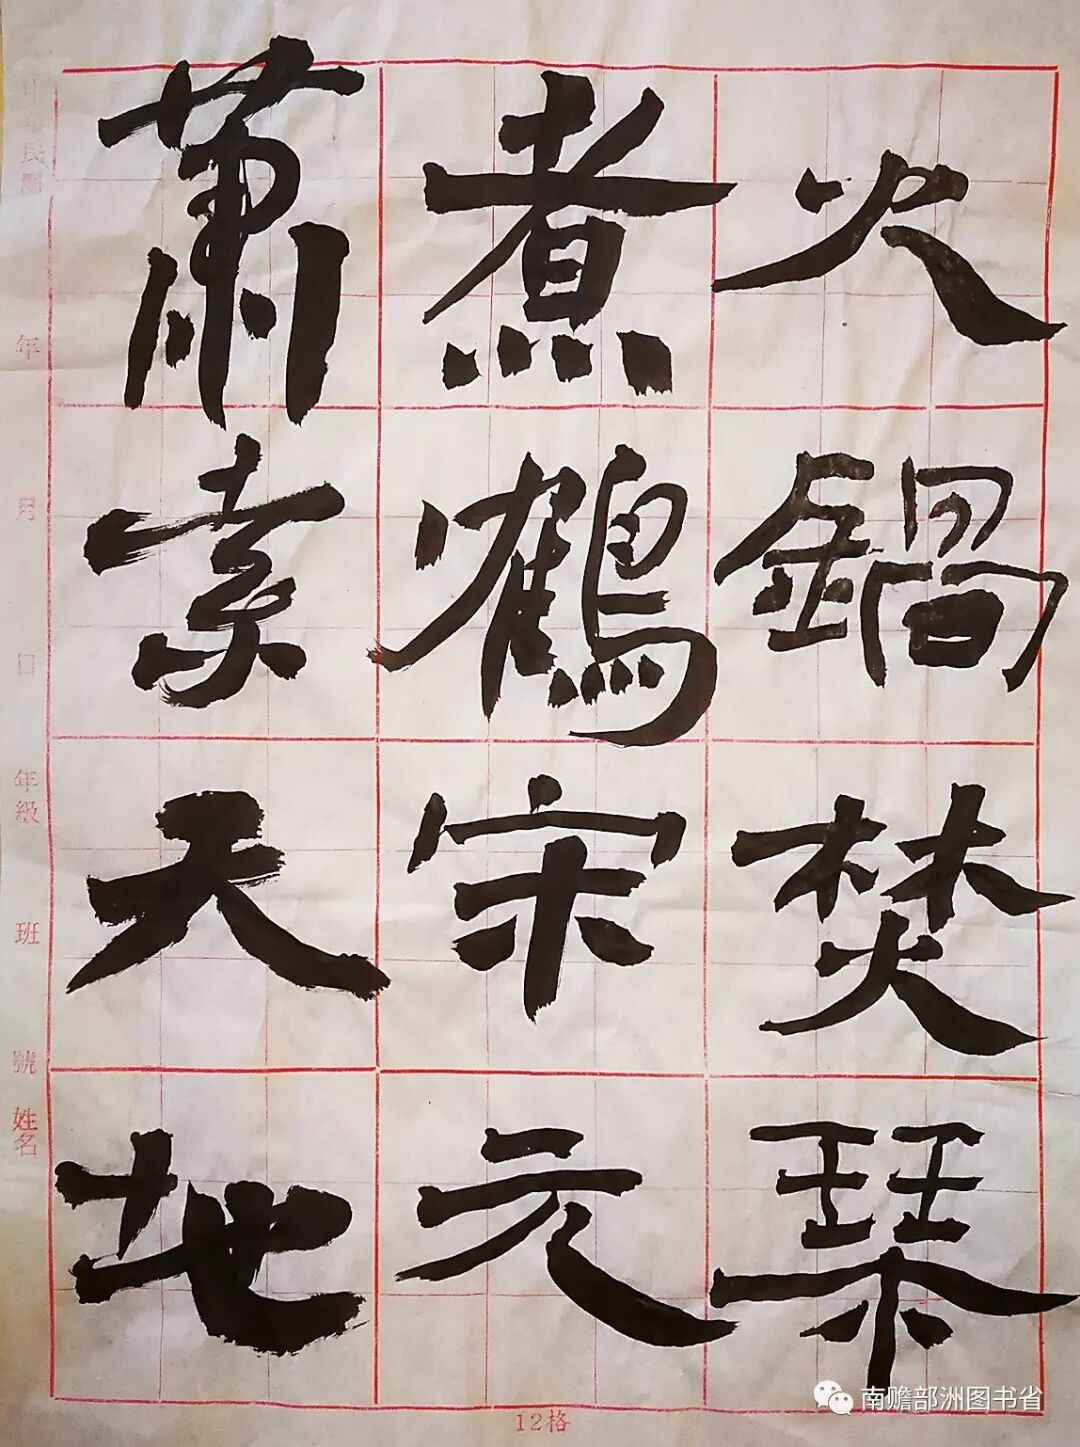 火鍋焚琹
煮鶴宋元
蕭索天地
年
月
日
年級
班
號
姓名
12格
南赡部洲图书省